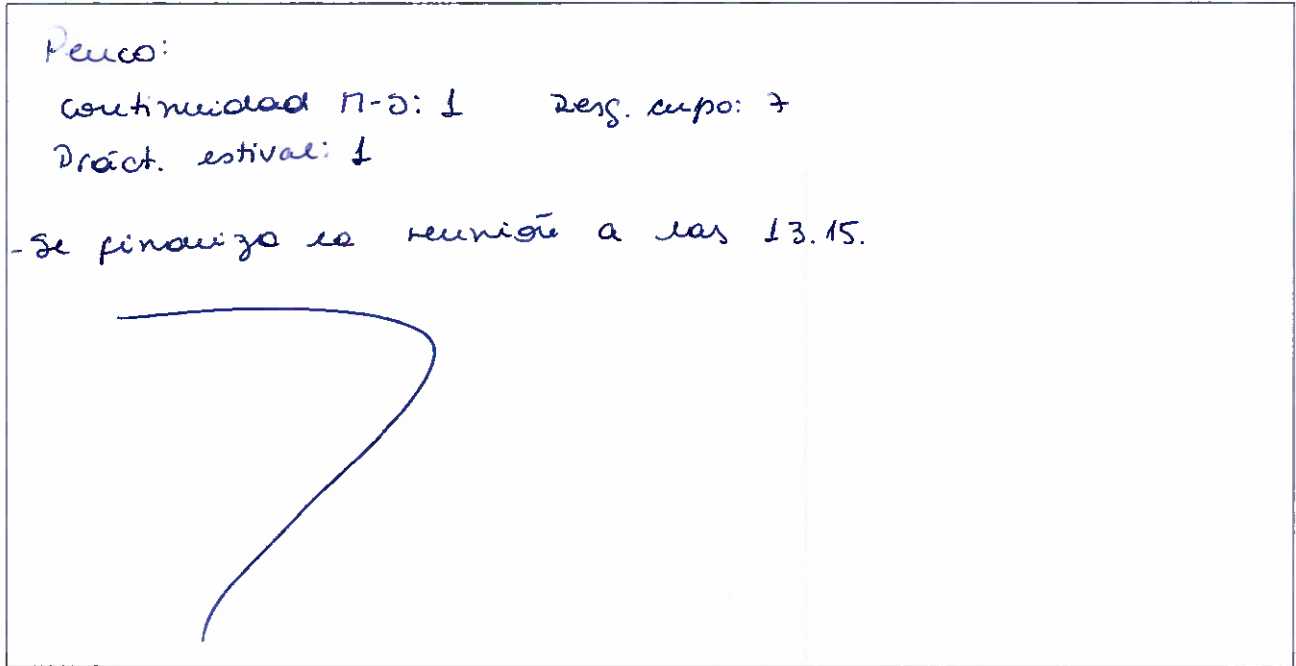 Penco:
continuidad M-J: 1 Desg. cupo: 7
Práct. estival: 1
- Se finaliza la reunión a las 13.15.